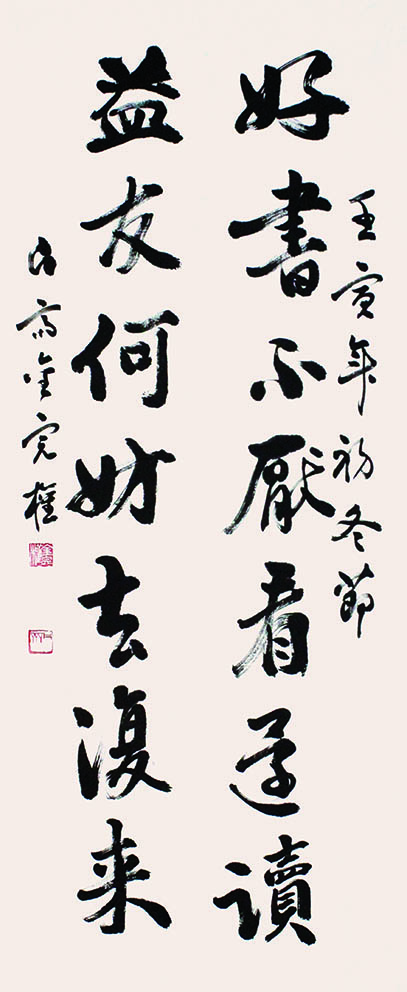 壬寅年初冬節
好書不厭看還讀
益友何妨去復来
金完權